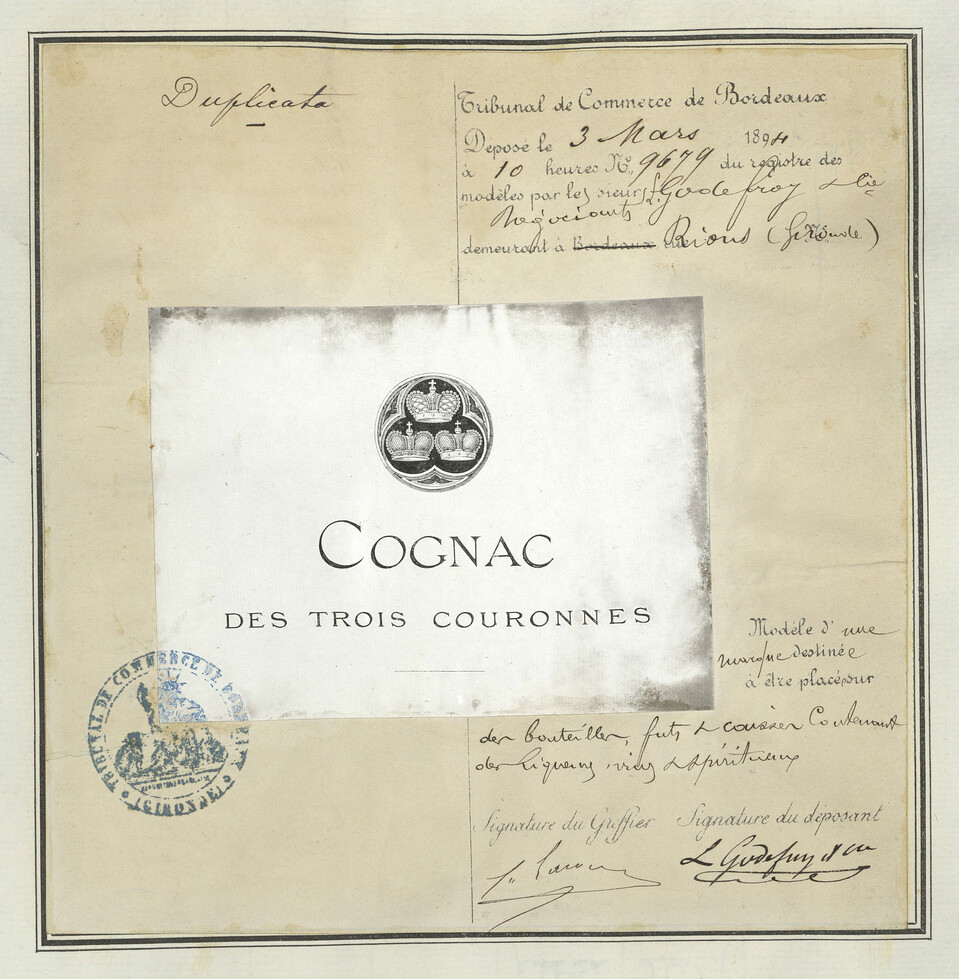 Duplicata
Tribunal de Commerce de Bordeaux
Déposé le 3 Mars 1894
à 10 heures No. 9679 du registre des
modèles par les sieurs L. Godefroy & Cie
Négociants
demeurant à Bordeaux Rions (Gironde)
COGNAC
DES TROIS COURONNES
Modèle d'une
marque destinée
à être placé sur
des bouteilles, futs & caisses Contenant
des liqueurs, vins & spiritueux
TRIBUNAL DE COMMERCE DE BORDEAUX
(GIRONDE)
Signature du Greffier Signature du déposant
L Godefroy & Cie